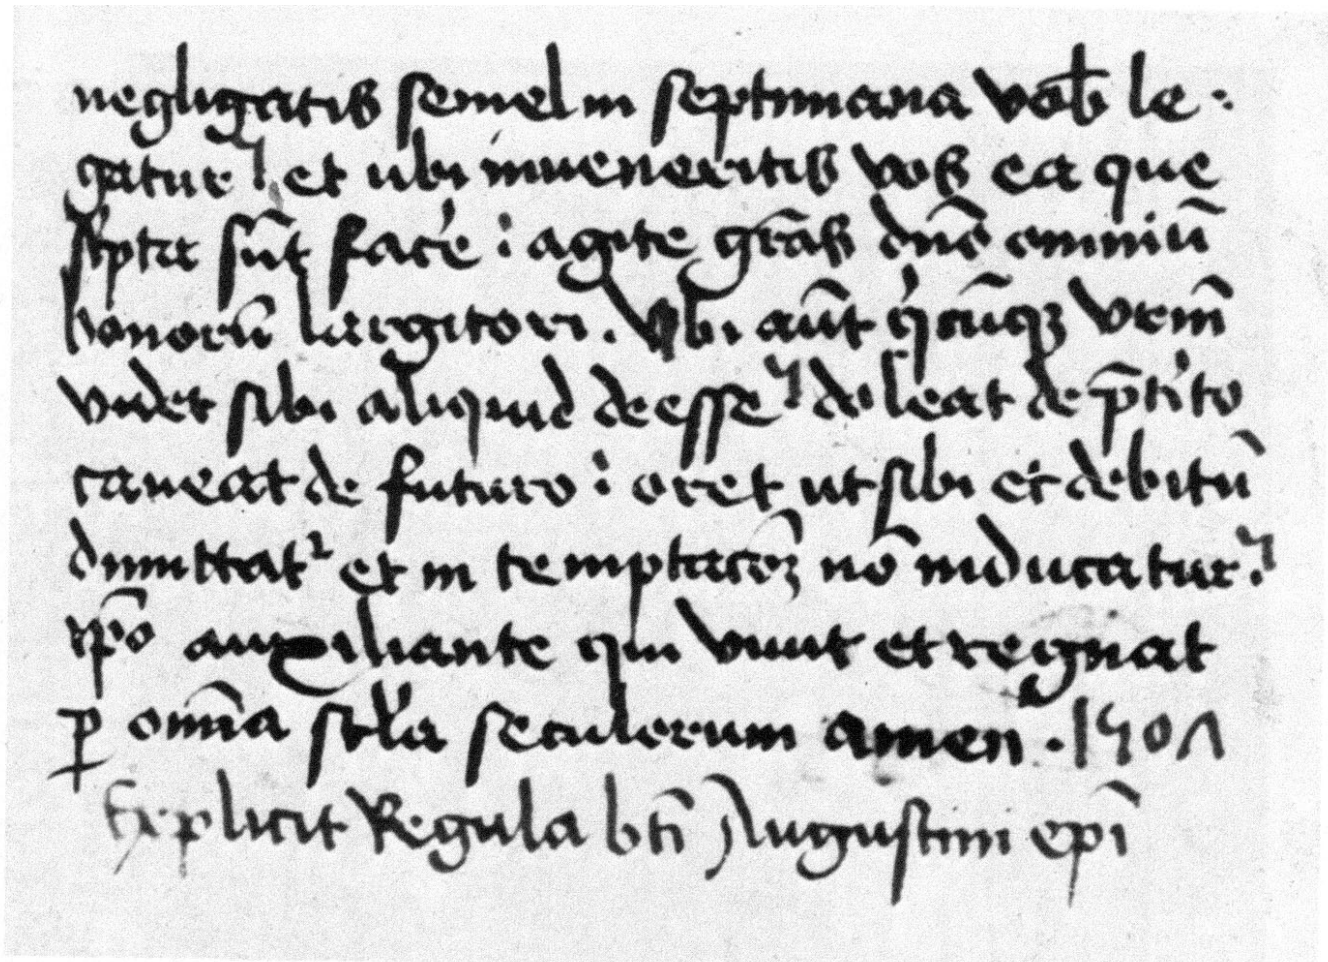 negligatis semel in septimana vob̄ le-
gatur et ubi inveneritis vos ea que
sc'pta sūt fac'e : agite gr̄as dn̄o omniū
bonorū largitori. Ubi aūt q'cūqꝫ vr̄m
videt sibi aliquid deesse doleat de p̄t'ito
caveat de futuro : oret ut sibi et debitū
dimittat² et in temptac̄oꝫ nō inducatur.
xp̄o auxiliante qui vivit et regnat
ꝑ om̄ia sc̄la seculorum amen. 1507
Explicit Regula bt̄i Augustini ep̄i